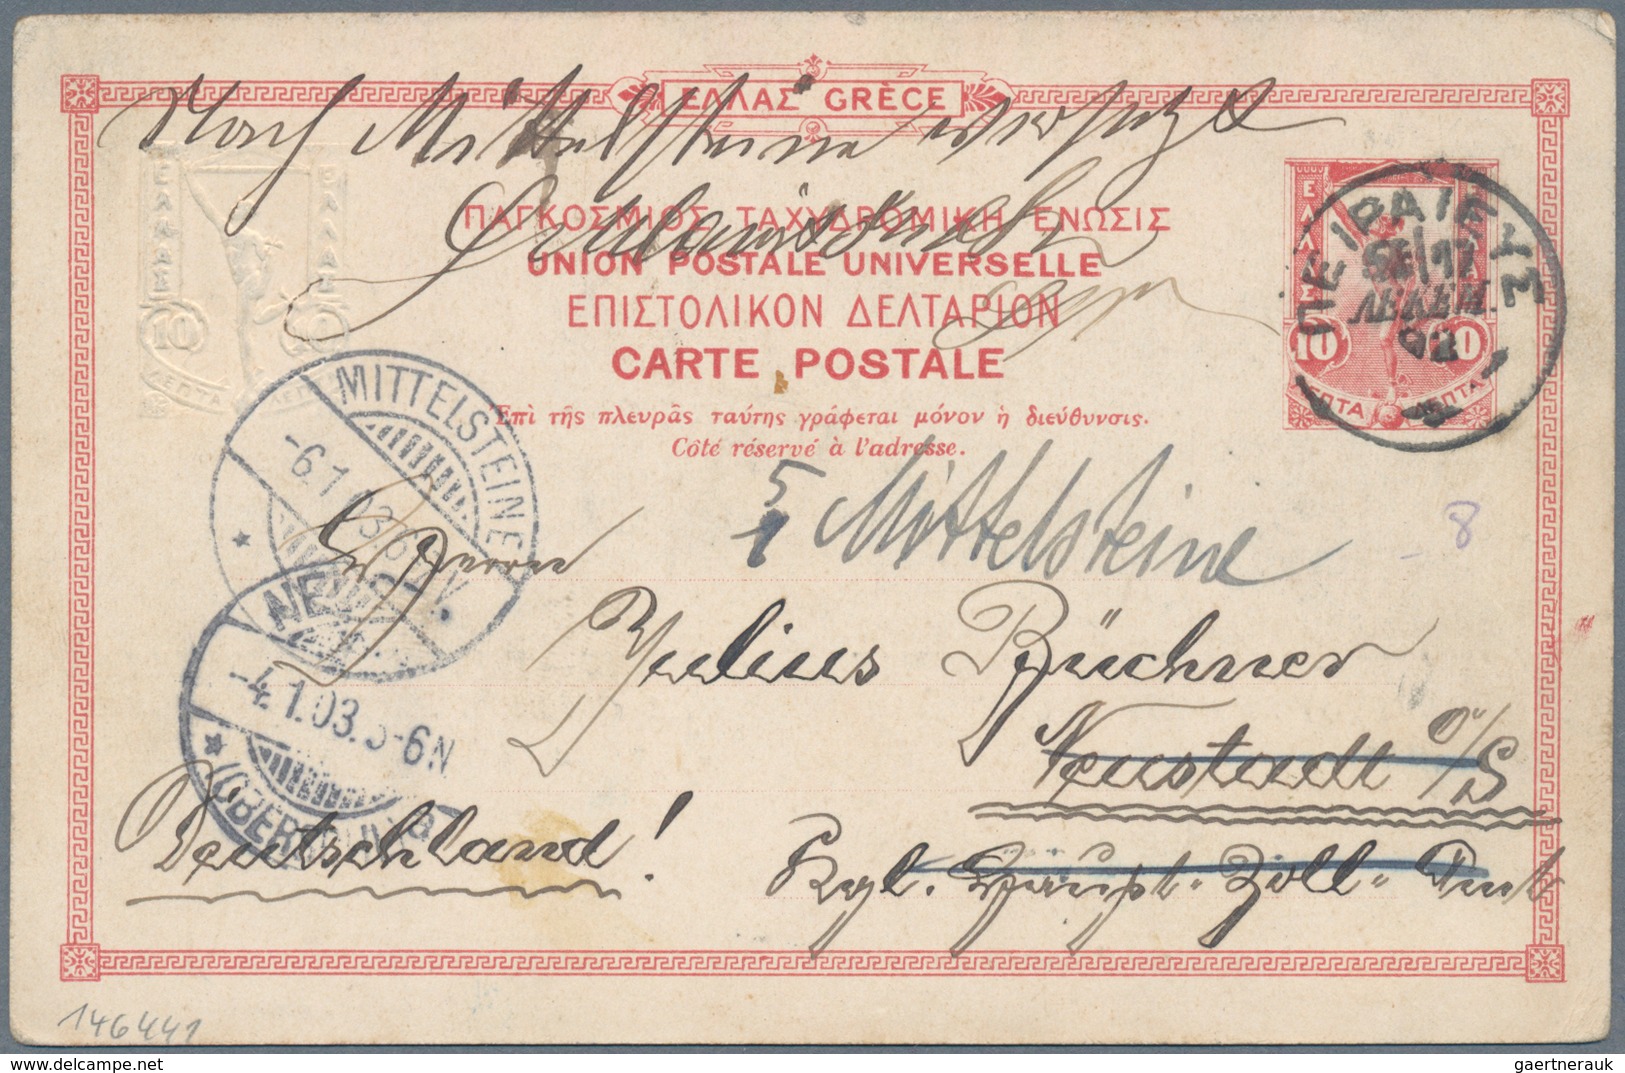 ΕΛΛΑΣ GRÈCE
Nach Mittelsteine versetzt
ΠΑΓΚΟΣΜΙΟΣ ΤΑΧΥΔΡΟΜΙΚΗ ΕΝΩΣΙΣ
UNION POSTALE UNIVERSELLE
ΕΠΙΣΤΟΛΙΚΟΝ ΔΕΛΤΑΡΙΟΝ
CARTE POSTALE
Ἐπὶ τῆς πλευρᾶς ταύτης γράφεται μόνον ἡ διεύθυνσις.
Côté réservé à l'adresse.
ΕΛΛΑΣ ΕΛΛΑΣ
10 10
ΛΕΠΤΑ
ΠΕΙΡΑΙΕΥΣ
ΔΕΚΕΜ.
10 10
ΛΕΠΤΑ ΛΕΠΤΑ
MITTELSTEINE
-6.1.03.
5/1 Mittelsteine
8
Herrn
Julius Büchner
Neustadt O/S
-4.1.03. 5-6N
Deutschland!
Kgl. Haupt-Zoll-Amt
146441
gaertnerauk / Delcampe.net